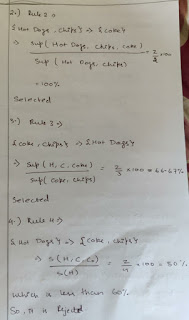 2.) Rule 2 ⇒
{Hot Dogs, Chips} ⇒ {Coke}
⇒ Sup (Hot Dogs, Chips, Coke) = 2/2 × 100
Sup (Hot Dogs, Chips)
= 100%
Selected
3.) Rule 3 ⇒
{Coke, Chips} ⇒ {Hot Dogs}
⇒ Sup (H, C, Coke) = 2/3 × 100 = 66.67%
Sup (Coke, Chips)
Selected
4.) Rule 4 ⇒
{Hot Dogs} ⇒ {Coke, Chips}
⇒ S (H, C, Co) = 2/4 × 100 = 50%
S(H)
Which is less than 60%
So, it is Rejected